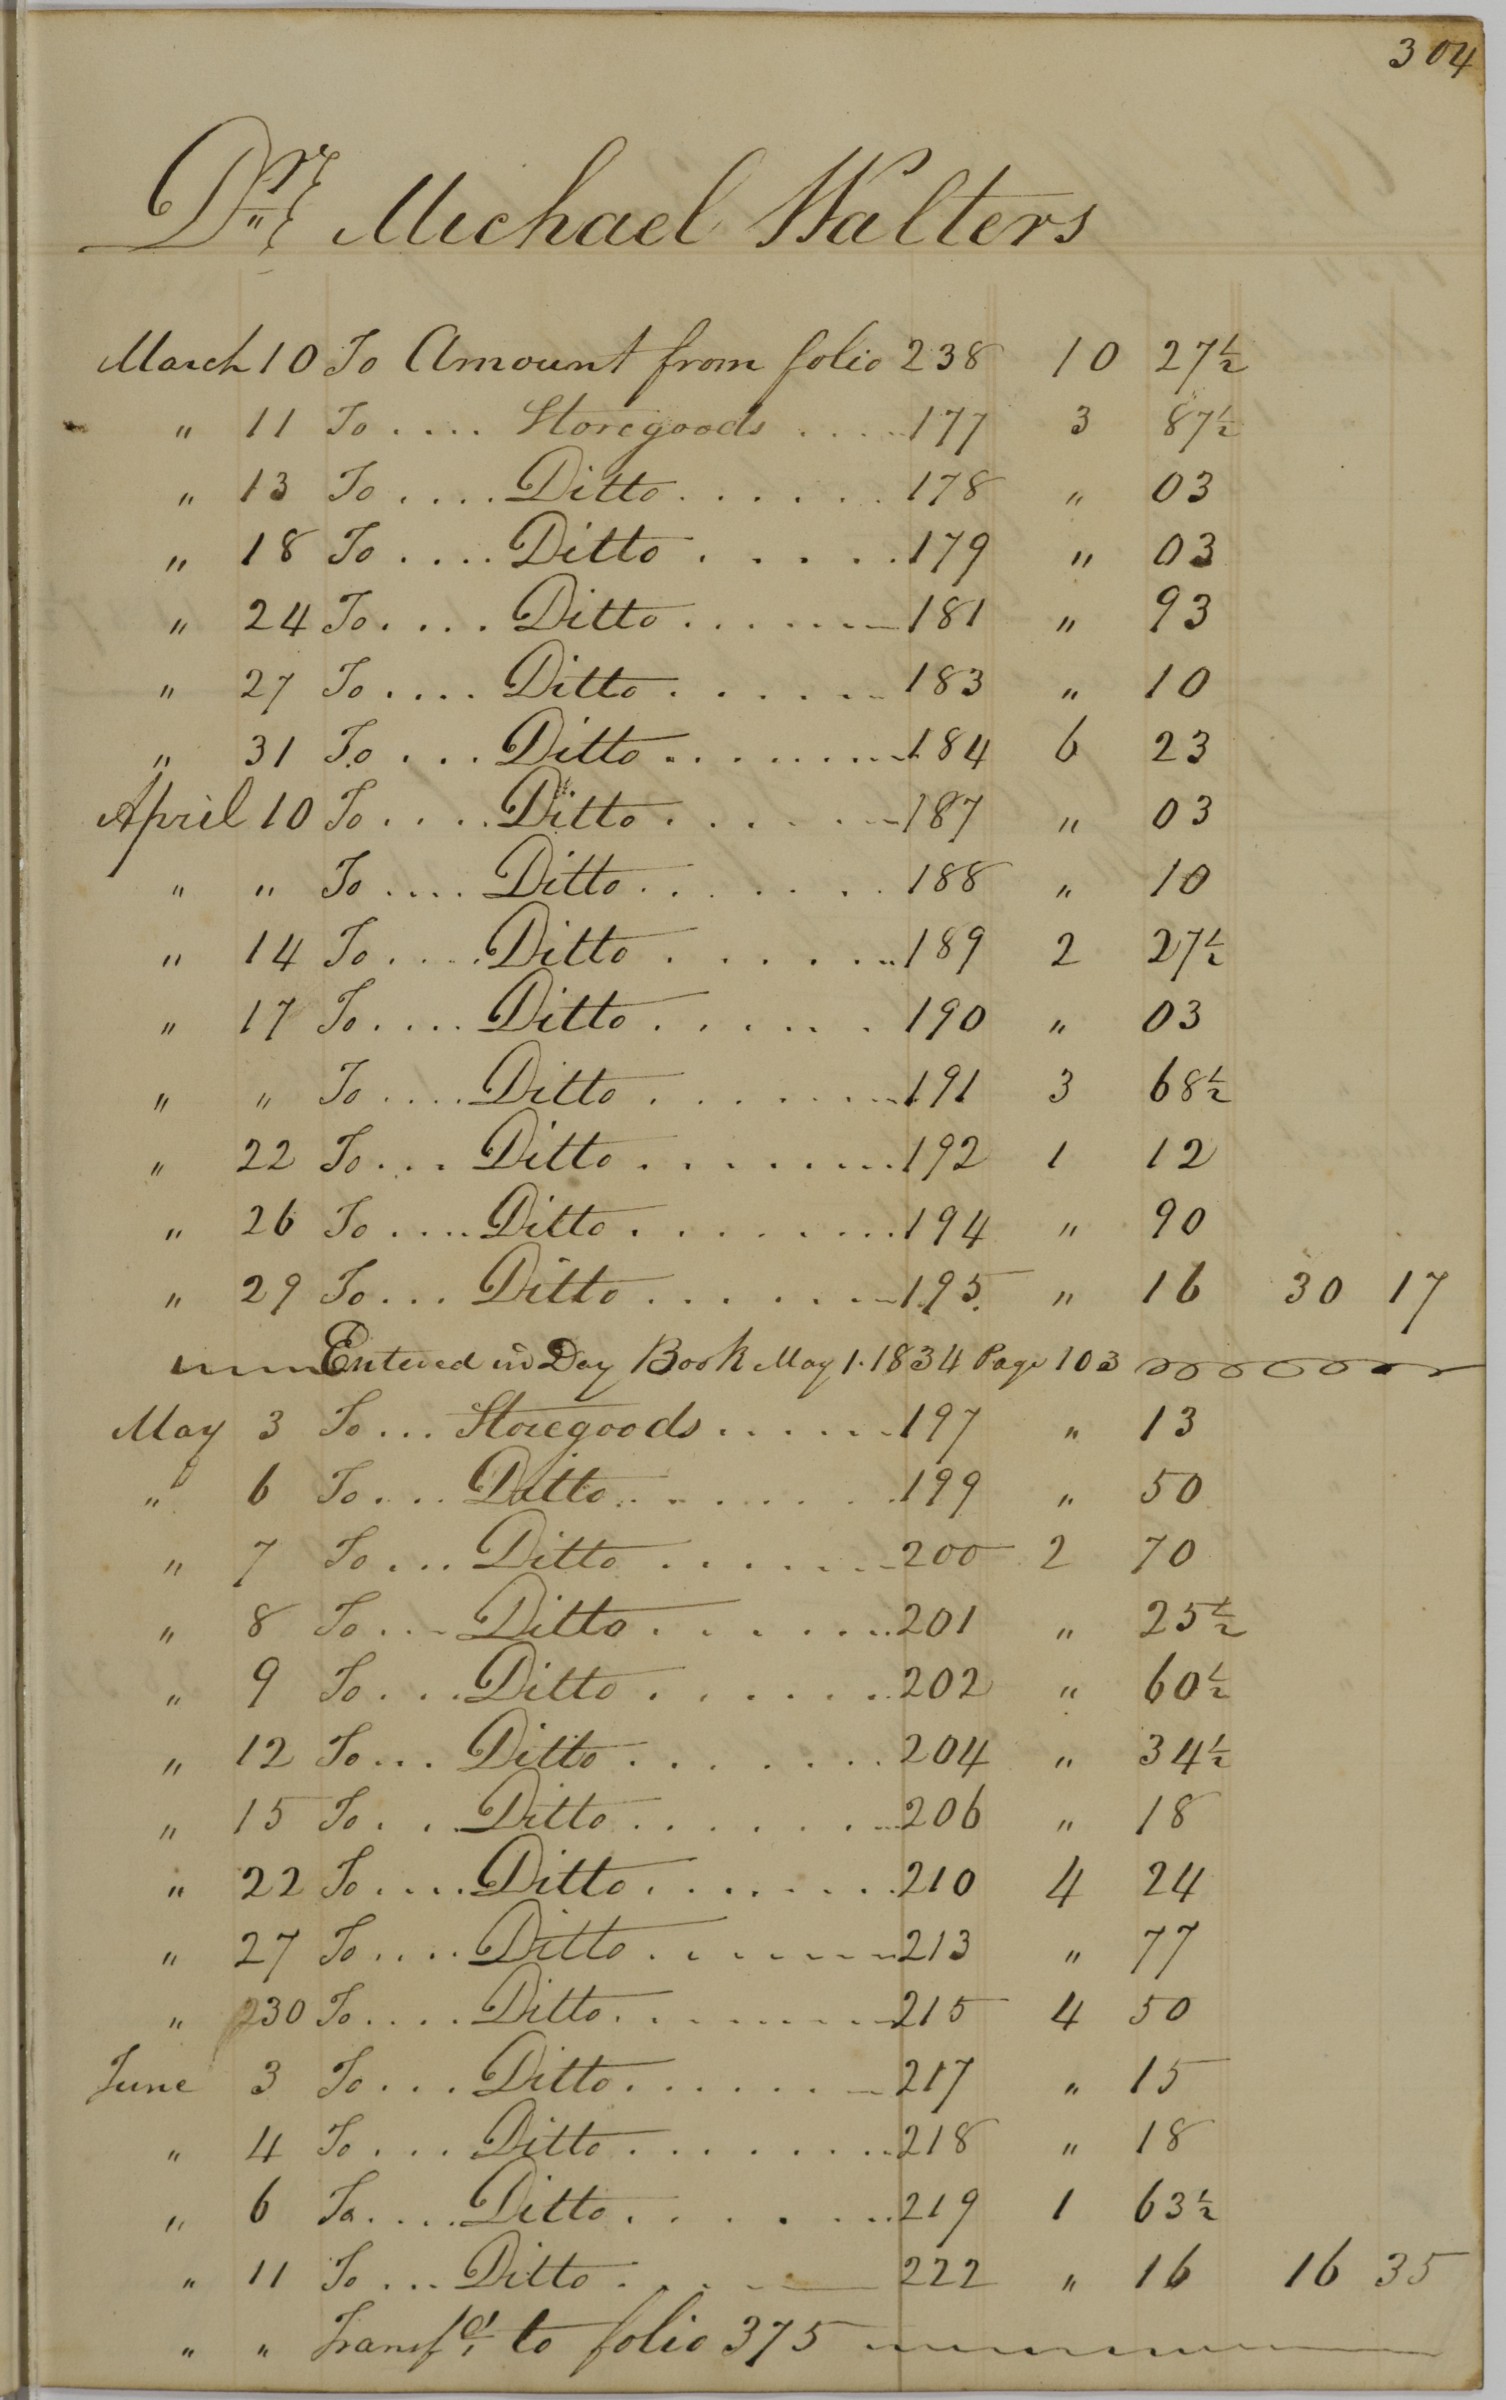 304
Dr. Michael Walters
March 10 To Amount from folio 238 10 27½
" 11 To .... Storegoods .... 177 3 87½
" 13 To .... Ditto ...... 178 " 03
" 18 To .... Ditto ..... 179 " 03
" 24 To .... Ditto ...... 181 " 93
" 27 To .... Ditto ...... 183 " 10
" 31 To .... Ditto ........ 184 6 23
April 10 To .... Ditto ...... 187 " 03
" " To .... Ditto ....... 188 " 10
" 14 To .... Ditto ....... 189 2 27½
" 17 To .... Ditto ...... 190 " 03
" " To .... Ditto ........ 191 3 68½
" 22 To ... Ditto ........ 192 1 12
" 26 To .... Ditto ........ 194 " 90
" 29 To ... Ditto ....... 195 " 16 30 17
Entered in Day Book May 1. 1834 Page 103
May 3 To ... Storegoods ...... 197 " 13
" 6 To ... Ditto ........ 199 " 50
" 7 To ... Ditto ...... 200 2 70
" 8 To ... Ditto ....... 201 " 25½
" 9 To ... Ditto ....... 202 " 60½
" 12 To ... Ditto ....... 204 " 34½
" 15 To ... Ditto ....... 206 " 18
" 22 To .... Ditto ........ 210 4 24
" 27 To .... Ditto ....... 213 " 77
" 230 To .... Ditto ........ 215 4 50
June 3 To ... Ditto ...... 217 " 15
" 4 To ... Ditto ........ 218 " 18
" 6 To .... Ditto ....... 219 1 63½
" 11 To ... Ditto .... 222 " 16 16 35
" " Transfd. to folio 375